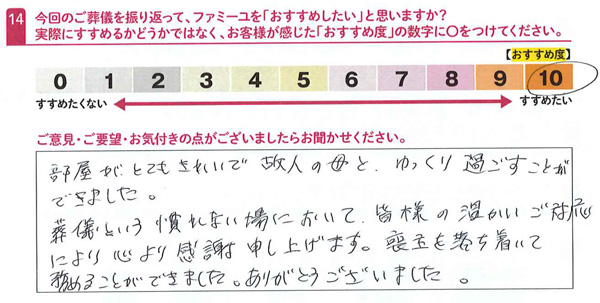 14 今回のご葬儀を振り返って、ファミーユを「おすすめしたい」と思いますか？
実際にすすめるかどうかではなく、お客様が感じた「おすすめ度」の数字に〇をつけてください。
【おすすめ度】
0 1 2 3 4 5 6 7 8 9 10
すすめたくない すすめたい
ご意見・ご要望・お気付きの点がございましたらお聞かせください。
部屋が、とてもきれいで 故人の母と、ゆっくり 過ごすことが
できました。
葬儀という 慣れない場において、皆様の 温かい ご対応
により 心より 感謝 申し上げます。喪主を落ち着いて
務めることができました。ありがとうございました。